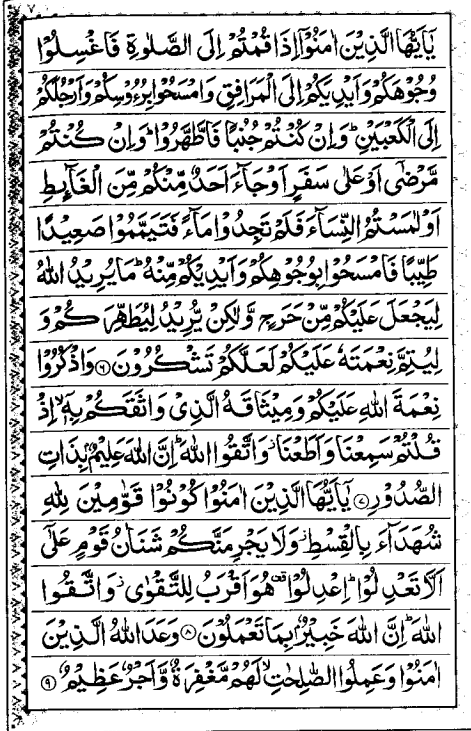 يٰۤاَيُّهَا الَّذِيْنَ اٰمَنُوْۤا اِذَا قُمْتُمْ اِلَى الصَّلٰوةِ فَاغْسِلُوْا
وُجُوْهَكُمْ وَاَيْدِيَكُمْ اِلَى الْمَرَافِقِ وَامْسَحُوْا بِرُءُوْسِكُمْ وَاَرْجُلَكُمْ
اِلَى الْكَعْبَيْنِؕ وَاِنْ كُنْتُمْ جُنُبًا فَاطَّهَّرُوْاؕ وَاِنْ كُنْتُمْ
مَّرْضٰۤى اَوْ عَلٰى سَفَرٍ اَوْ جَآءَ اَحَدٌ مِّنْكُمْ مِّنَ الْغَآئِطِ
اَوْ لٰمَسْتُمُ النِّسَآءَ فَلَمْ تَجِدُوْا مَآءً فَتَيَمَّمُوْا صَعِيْدًا
طَيِّبًا فَامْسَحُوْا بِوُجُوْهِكُمْ وَاَيْدِيْكُمْ مِّنْهُؕ مَا يُرِيْدُ اللّٰهُ
لِيَجْعَلَ عَلَيْكُمْ مِّنْ حَرَجٍ وَّلٰكِنْ يُّرِيْدُ لِيُطَهِّرَكُمْ وَ
لِيُتِمَّ نِعْمَتَهٗ عَلَيْكُمْ لَعَلَّكُمْ تَشْكُرُوْنَ ۝۶ وَاذْكُرُوْا
نِعْمَةَ اللّٰهِ عَلَيْكُمْ وَمِيْثَاقَهُ الَّذِيْ وَاثَقَكُمْ بِهٖۤۙ اِذْ
قُلْتُمْ سَمِعْنَا وَاَطَعْنَاؗ وَاتَّقُوا اللّٰهَؕ اِنَّ اللّٰهَ عَلِيْمٌۢ بِذَاتِ
الصُّدُوْرِ ۝۷ يٰۤاَيُّهَا الَّذِيْنَ اٰمَنُوْا كُوْنُوْا قَوّٰمِيْنَ لِلّٰهِ
شُهَدَآءَ بِالْقِسْطِؗ وَلَا يَجْرِمَنَّكُمْ شَنَاٰنُ قَوْمٍ عَلٰۤى
اَلَّا تَعْدِلُوْاؕ اِعْدِلُوْا۫ هُوَ اَقْرَبُ لِلتَّقْوٰىؗ وَاتَّقُوا
اللّٰهَؕ اِنَّ اللّٰهَ خَبِيْرٌۢ بِمَا تَعْمَلُوْنَ ۝۸ وَعَدَ اللّٰهُ الَّذِيْنَ
اٰمَنُوْا وَعَمِلُوا الصّٰلِحٰتِۙ لَهُمْ مَّغْفِرَةٌ وَّاَجْرٌ عَظِيْمٌ ۝۹